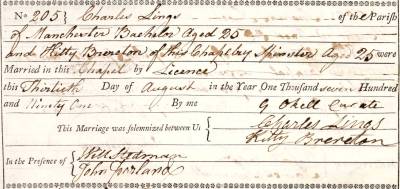 No 205 } Charles Lings of the Parish
of Manchester Bachelor Aged 25
and Kitty Brereton of this Chapelry Spinster Aged 25 were
Married in this Chapel by Licence
this Thirtieth Day of August in the Year One Thousand seven Hundred
and Ninety One By me G Okell Curate
This Marriage was solemnized between Us { Charles Lings
Kitty Brereton
In the Presence of { Will Rodman
John